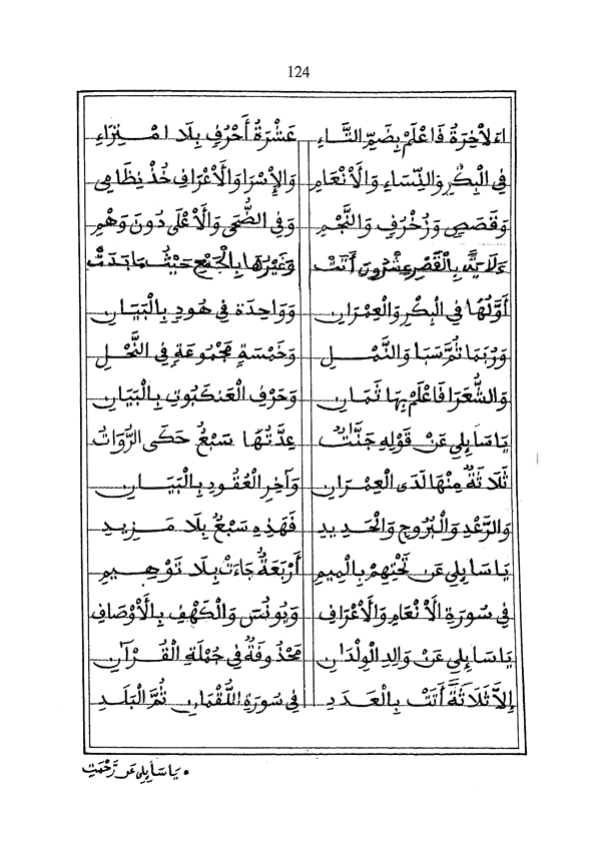 124
اَءَلاْخِرَةُ فَاعْلَمْ بِضَمِّ التَّاءِ عَشْرَةُ أَحْرُفٍ بِلَا امْتِرَاءِ
فِي الْبِكْرِ وَالنِّسَاءِ وَالْأَنْعَامِ وَالإِسْرَا وَالْأَعْرَافِ خُذْ نِظَامِى
وَقَصَصٍ وَزُخْرُفٍ وَالنَّجْمِ وَفِي الضُّحَى وَالْأَعْلَى دُونَ وَهْمِ
ءَلَايَةً بِالْقَصْرِ عِشْرُونَ أَتَتْ وَغَيْرُهَا بِالْجَمْعِ حَيْثُ مَا بَدَتْ
أَوَّلُهَا فِي الْبِكْرِ وَالْعِمْرَانِ وَوَاحِدَة فِي هُودٍ بِالْبَيَانِ
وَرُبَمَا ثُمَّ سَبَا وَالنَّمْلِ وَخَمْسَةٍ مَجْمُوعَةٍ فِي النَّحْلِ
وَالشُّعَرَا فَاعْلَمْ بِهَا ثَمَانِ وَحَرْفُ الْعَنكَبُوتِ بِالْبَيَانِ
يَا سَايِلِي عَنْ قَوْلِهِ جَنَّاتُ عِدَّتُهَا سَبْعُ حَكَى الرُّوَاتُ
ثَلَاثَةٌ مِنْهَا لَدَى الْعِمْرَانِ وَآخِرِ الْعُقُودِ بِالْبَيَانِ
وَالرَّعْدِ وَالْبُرُوجِ وَالْحَدِيدِ فَهَذِهِ سَبْعٌ بِلَا مَزِيدِ
يَا سَايِلِي عَن تَحْتِهِمْ بِالْمِيمِ أَرْبَعَةٌ جَاءَتْ بِلَا تَوْهِيمِ
فِي سُورَةِ الْأَنْعَامِ وَالْأَعْرَافِ وَيُونُسَ وَالْكَهْفِ بِالْأَوْصَافِ
يَا سَايِلِي عَنْ وَالِدِ الْوِلْدَانِ مَحْذُوفَةٌ فِي جُمْلَةِ الْقُرْآنِ
إِلَّا ثَلَاثَةً أَتَتْ بِالْعَدَدِ فِي سُورَةِ اللُّقْمَانِ ثُمَّ الْبَلَدِ
• يَا سَايِلِي عَن رَّحْمَتِ